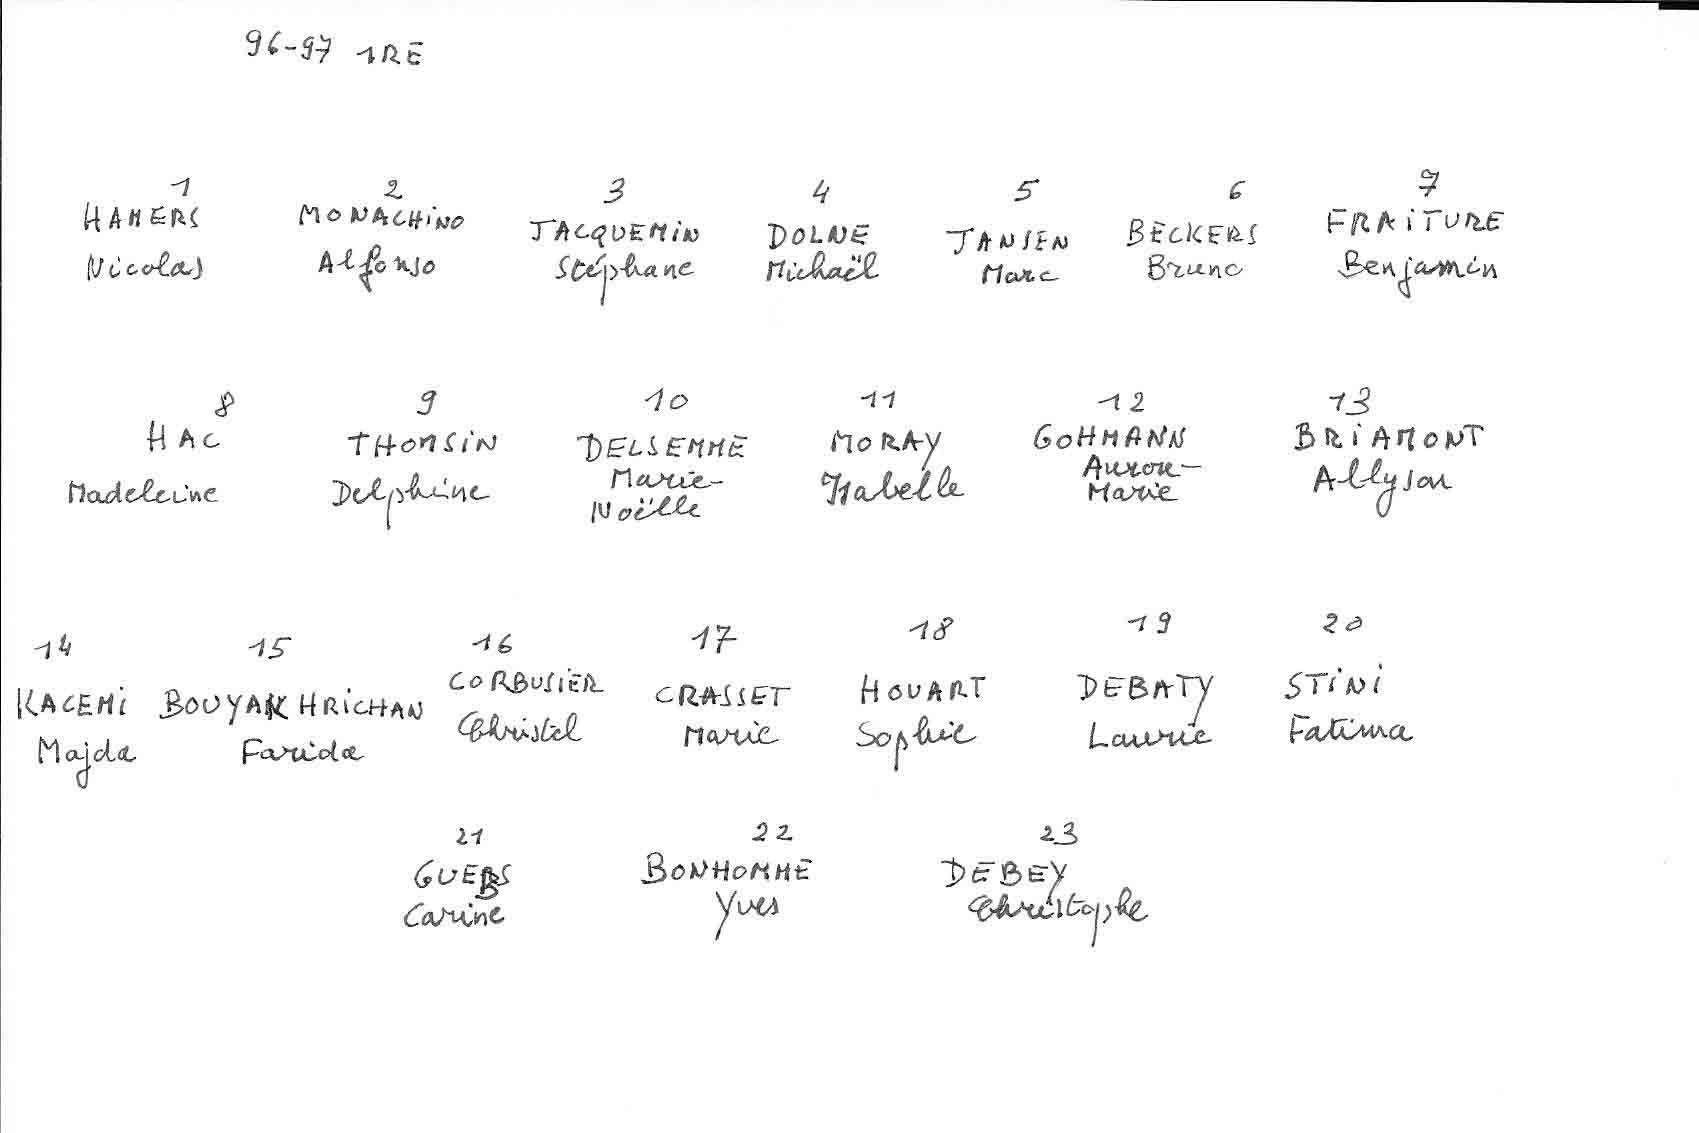 96-97 1RE
1 2 3 4 5 6 7
HAMERS MONACHiNO JACQUEMiN DOLNE JANSEN BECKERS FRAiTURE
Nicolas Alfonso Stéphane Michaël Marc Bruno Benjamin
8 9 10 11 12 13
HAC THOMSiN DELSEMME MORAY GOHMANN BRiAMONT
Madeleine Delphine Marie- Isabelle Allyson
Noëlle Marie
14 15 16 17 18 19 20
KACEMi BOUYAKHRiCHAN CORBUSiER CRASSET HOUART DEBATY STiNi
Majda Farida Christel Marie Sophie Laurie Fatima
21 22 23
BONHOMME DEBEY
Carine Yves Christophe